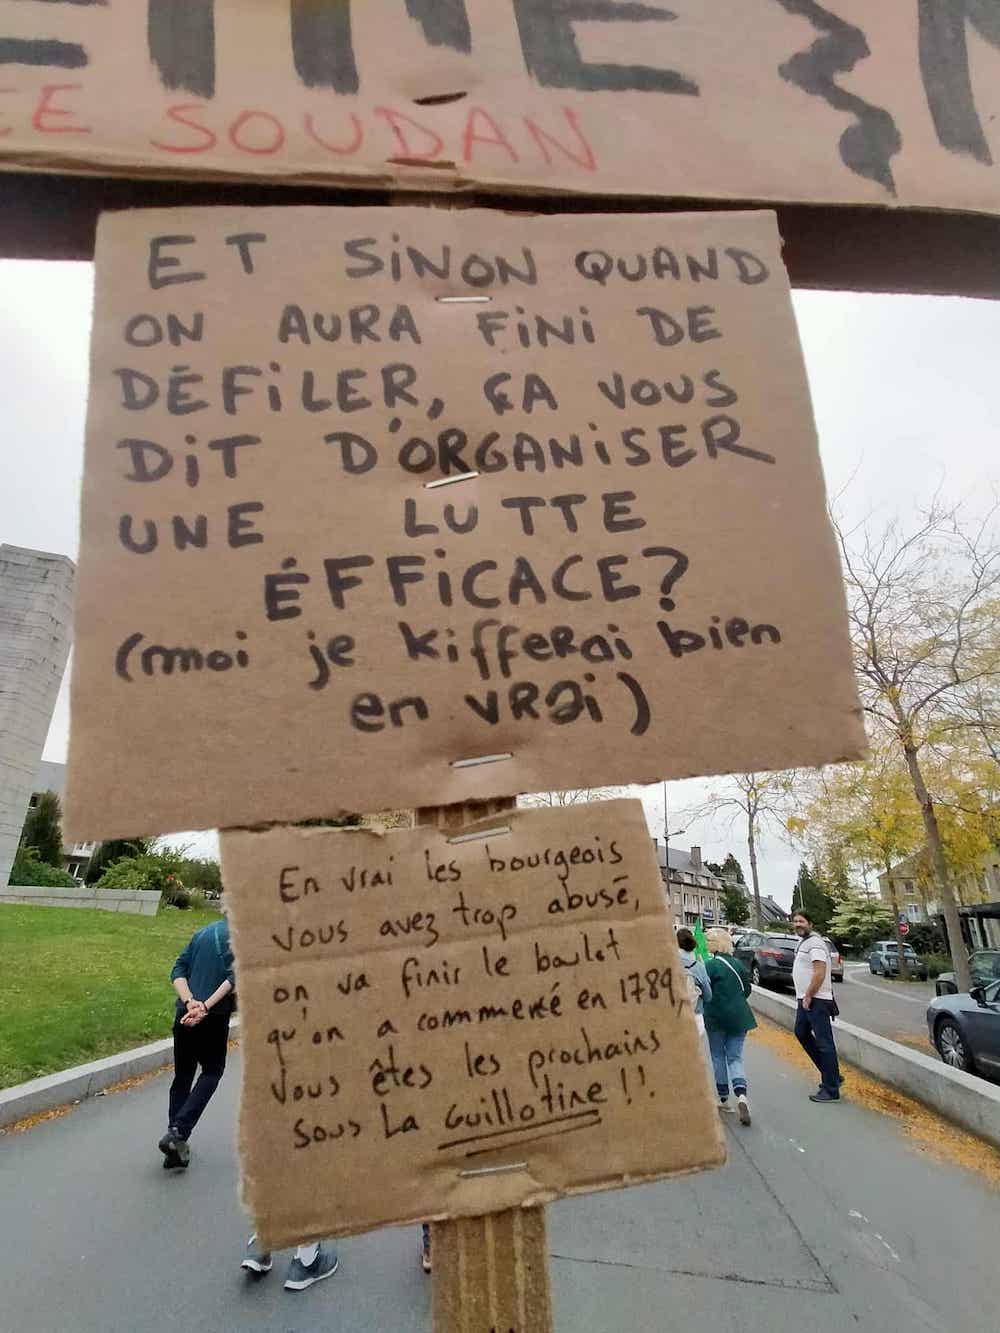 EE SOUDAN
ET SiNON QUAND
ON AURA FiNi DE
DÉFiLER, ÇA VOUS
DiT D'ORGANiSER
UNE LUTTE
ÉFFiCACE?
(moi je kiffeRai bien
en vRai)
En vrai les bourgeois
vous avez trop abusé,
on va finir le boulot
qu'on a commencé en 1789,
vous êtes les prochains
sous la Guillotine!!